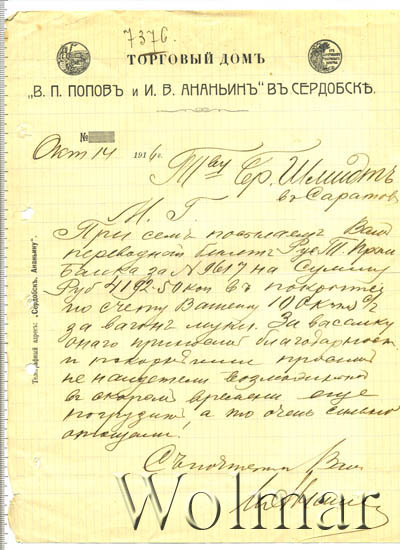 7376.
ТОРГОВЫЙ ДОМЪ
„В. П. ПОПОВЪ и И. В. АНАНЬИНЪ" ВЪ СЕРДОБСКѢ.
№
Окт 14 1916 г.
Т ву Бр. Шмидтъ
въ Саратов
М. Г.
При семъ посылаемъ Вам
переводной билетъ Рус Т. Пром
Банка за № 9617 на сумму
Руб 4192-50 коп въ покрытіе
по счету Вашему 10 Окт
за вагонъ муки. За
благодарност
и просимъ
не
в скором времени еще
погрузить, а то очень сильно
Съ почтен
Телеграфный адресъ: „Сердобскъ, Ананьину".
Wolmar